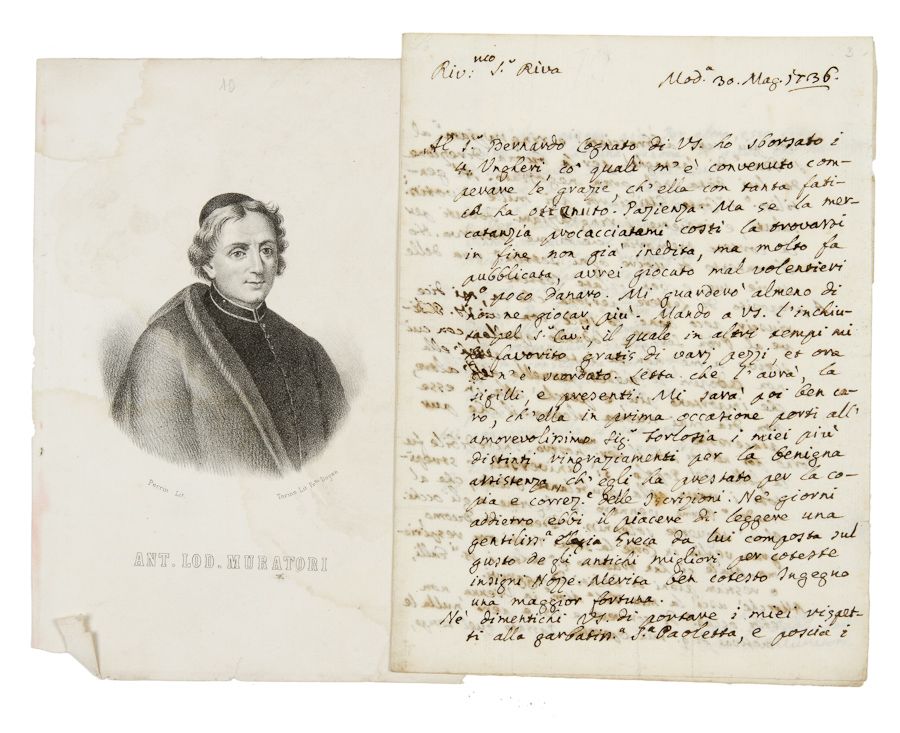 10
Perrin Lit.
Torino Lit. F.lli Doyen
ANT. LOD. MURATORI
3
Riv: nico S.r Riva
Mod.a 30. Mag. 1736.
Al S.r Bernardo Cognato di VS. ho sborsato i
4. Ungheri, co' quali m'è convenuto com-
perare le grazie, ch'ella con tanta fati-
ca ha ottenuto. Pazienza. Ma se la mer-
catanzia procacciatami costì la trovassi
in fine non già inedita, ma molto fa
pubblicata, avrei giocato mal volentieri
poco danaro. Mi guarderò almeno di
non ne giocar più. Mando a VS. l'inchiu-
sa pel S.r Cav.r, il quale in altri tempi mi
ha favorito gratis di varj pezzi, et ora
se n'è scordato. Letta che l'avrà, la
sigilli, e presenti. Mi sarà poi ben ca-
ro, ch'ella in prima occasione porti all'
amorevolissimo Sig.r Torlosia i miei più
distinti ringraziamenti per la benigna
assistenza, ch'egli ha prestato per la co-
pia e correz.e delle Iscrizioni. Ne' giorni
addietro ebbi il piacere di leggere una
gentiliss.a elegia Greca da lui composta sul
gusto degli antichi migliori per coteste
insigni Nozze. Merita ben cotesto Ingegno
una maggior fortuna.
Nè dimentichi VS. di portare i miei rispet-
ti alla garbatiss.a S.ra Paoletta, e poscia i